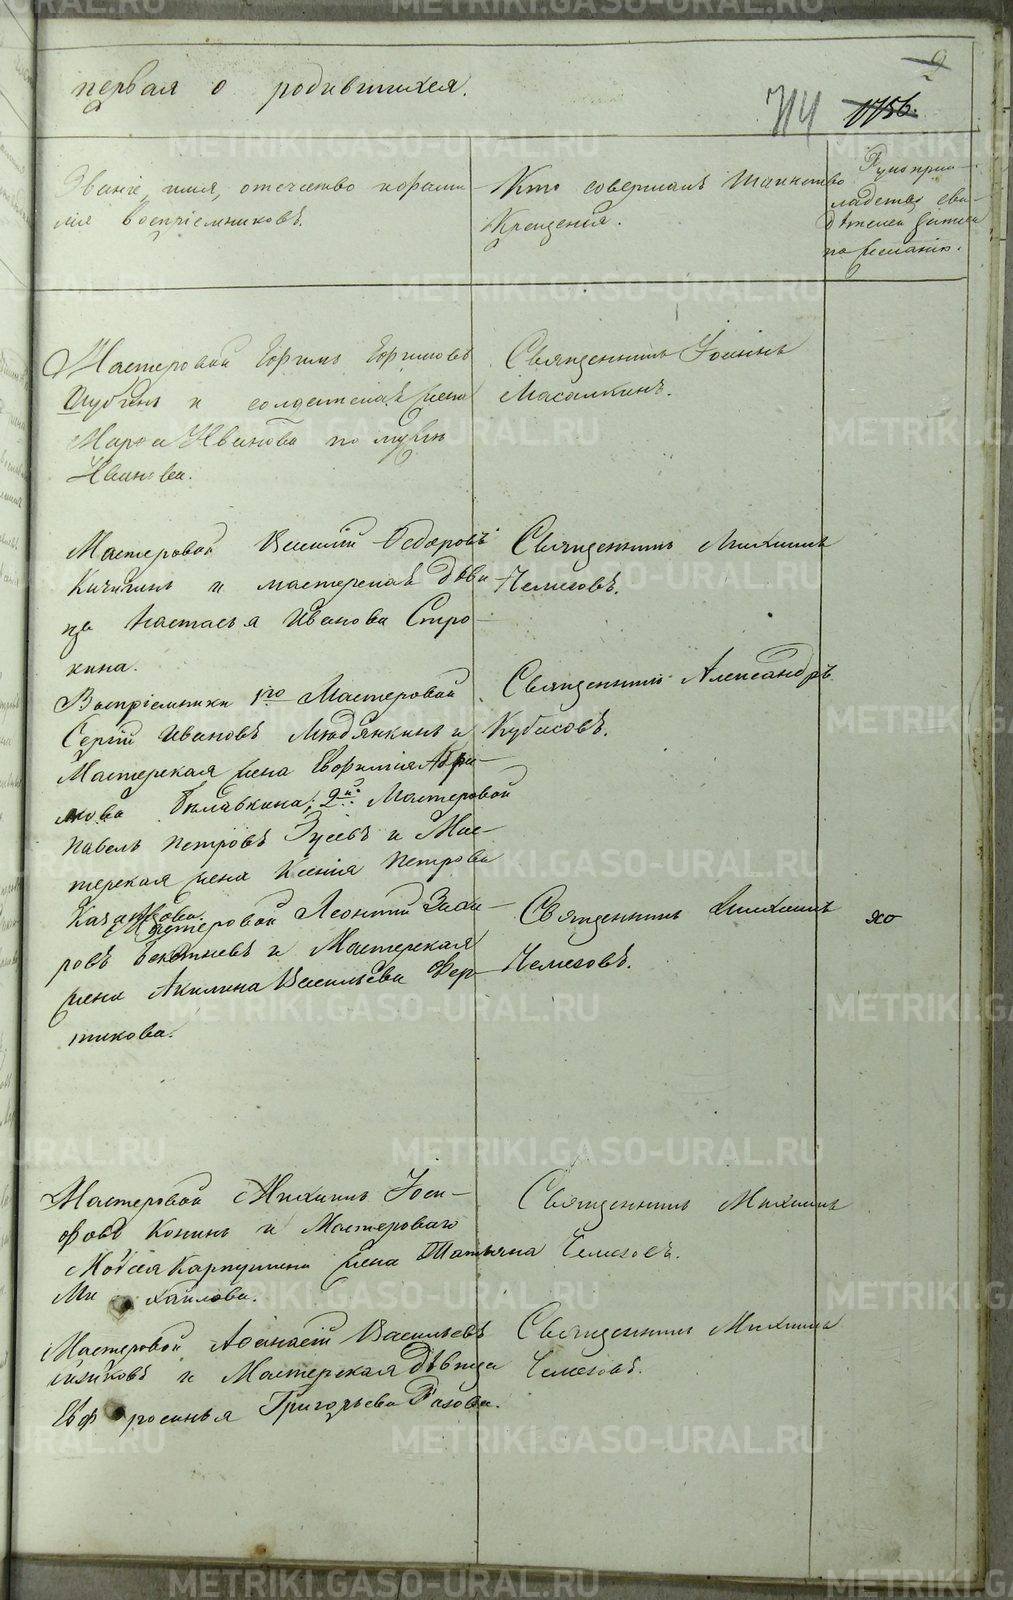 первая о родившихся.
9
714 1156.
Званіе, имя, отечество и фами-
лія воспріемниковъ.
Кто совершалъ таинство
Крещенія.
Рукопри-
кладство сви-
дѣтелей записи
по желанію.
Мастеровой Ефимъ Ефимовъ
и солдатская жена
Марѳа Иванова по мужу
Иванова.
Священникъ Іоаннъ
Масалкинъ.
Мастеровой Василій Ѳедоровъ
Кичигинъ и мастерская дѣви-
ца Настасья Иванова Стро-
кина.
Священникъ Михаилъ
Чемезовъ.
Воспріемники 1го Мастеровой
Сергій Ивановъ Людянкинъ и
Мастерская жена Евфимія Абра-
мова Булавкина; 2й Мастеровой
Павелъ Петровъ Зуевъ и Мас-
терская жена Ксенія Петрова
Священникъ Александръ
Кубасовъ.
Мастеровой Леонтій Заха-
ровъ и Мастерская
жена Акилина Васильева Фер-
тикова.
Священникъ Михаилъ
Чемезовъ.
Мастеровой Михаилъ Іоси-
фовъ Конинъ и Мастероваго
Моѵсея Карпушина жена Татьяна
Михайлова.
Священникъ Михаилъ
Чемезовъ.
Мастеровой Аѳанасій Васильевъ
и Мастерская дѣвица
Евфросинья Григорьева Рахова.
Священникъ Михаилъ
Чемезовъ.
METRIKI.GASO-URAL.RU